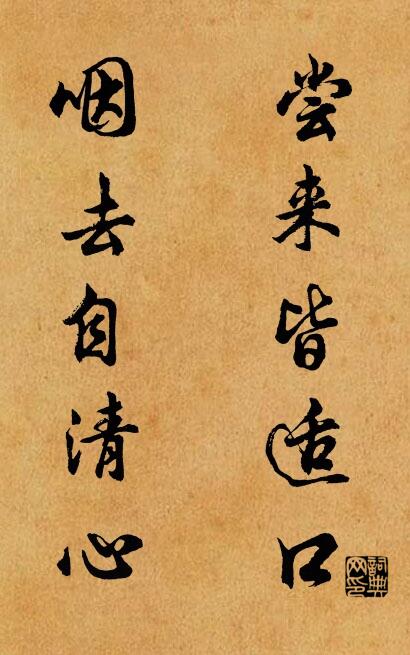 尝来皆适口
咽去自清心
詞典网印